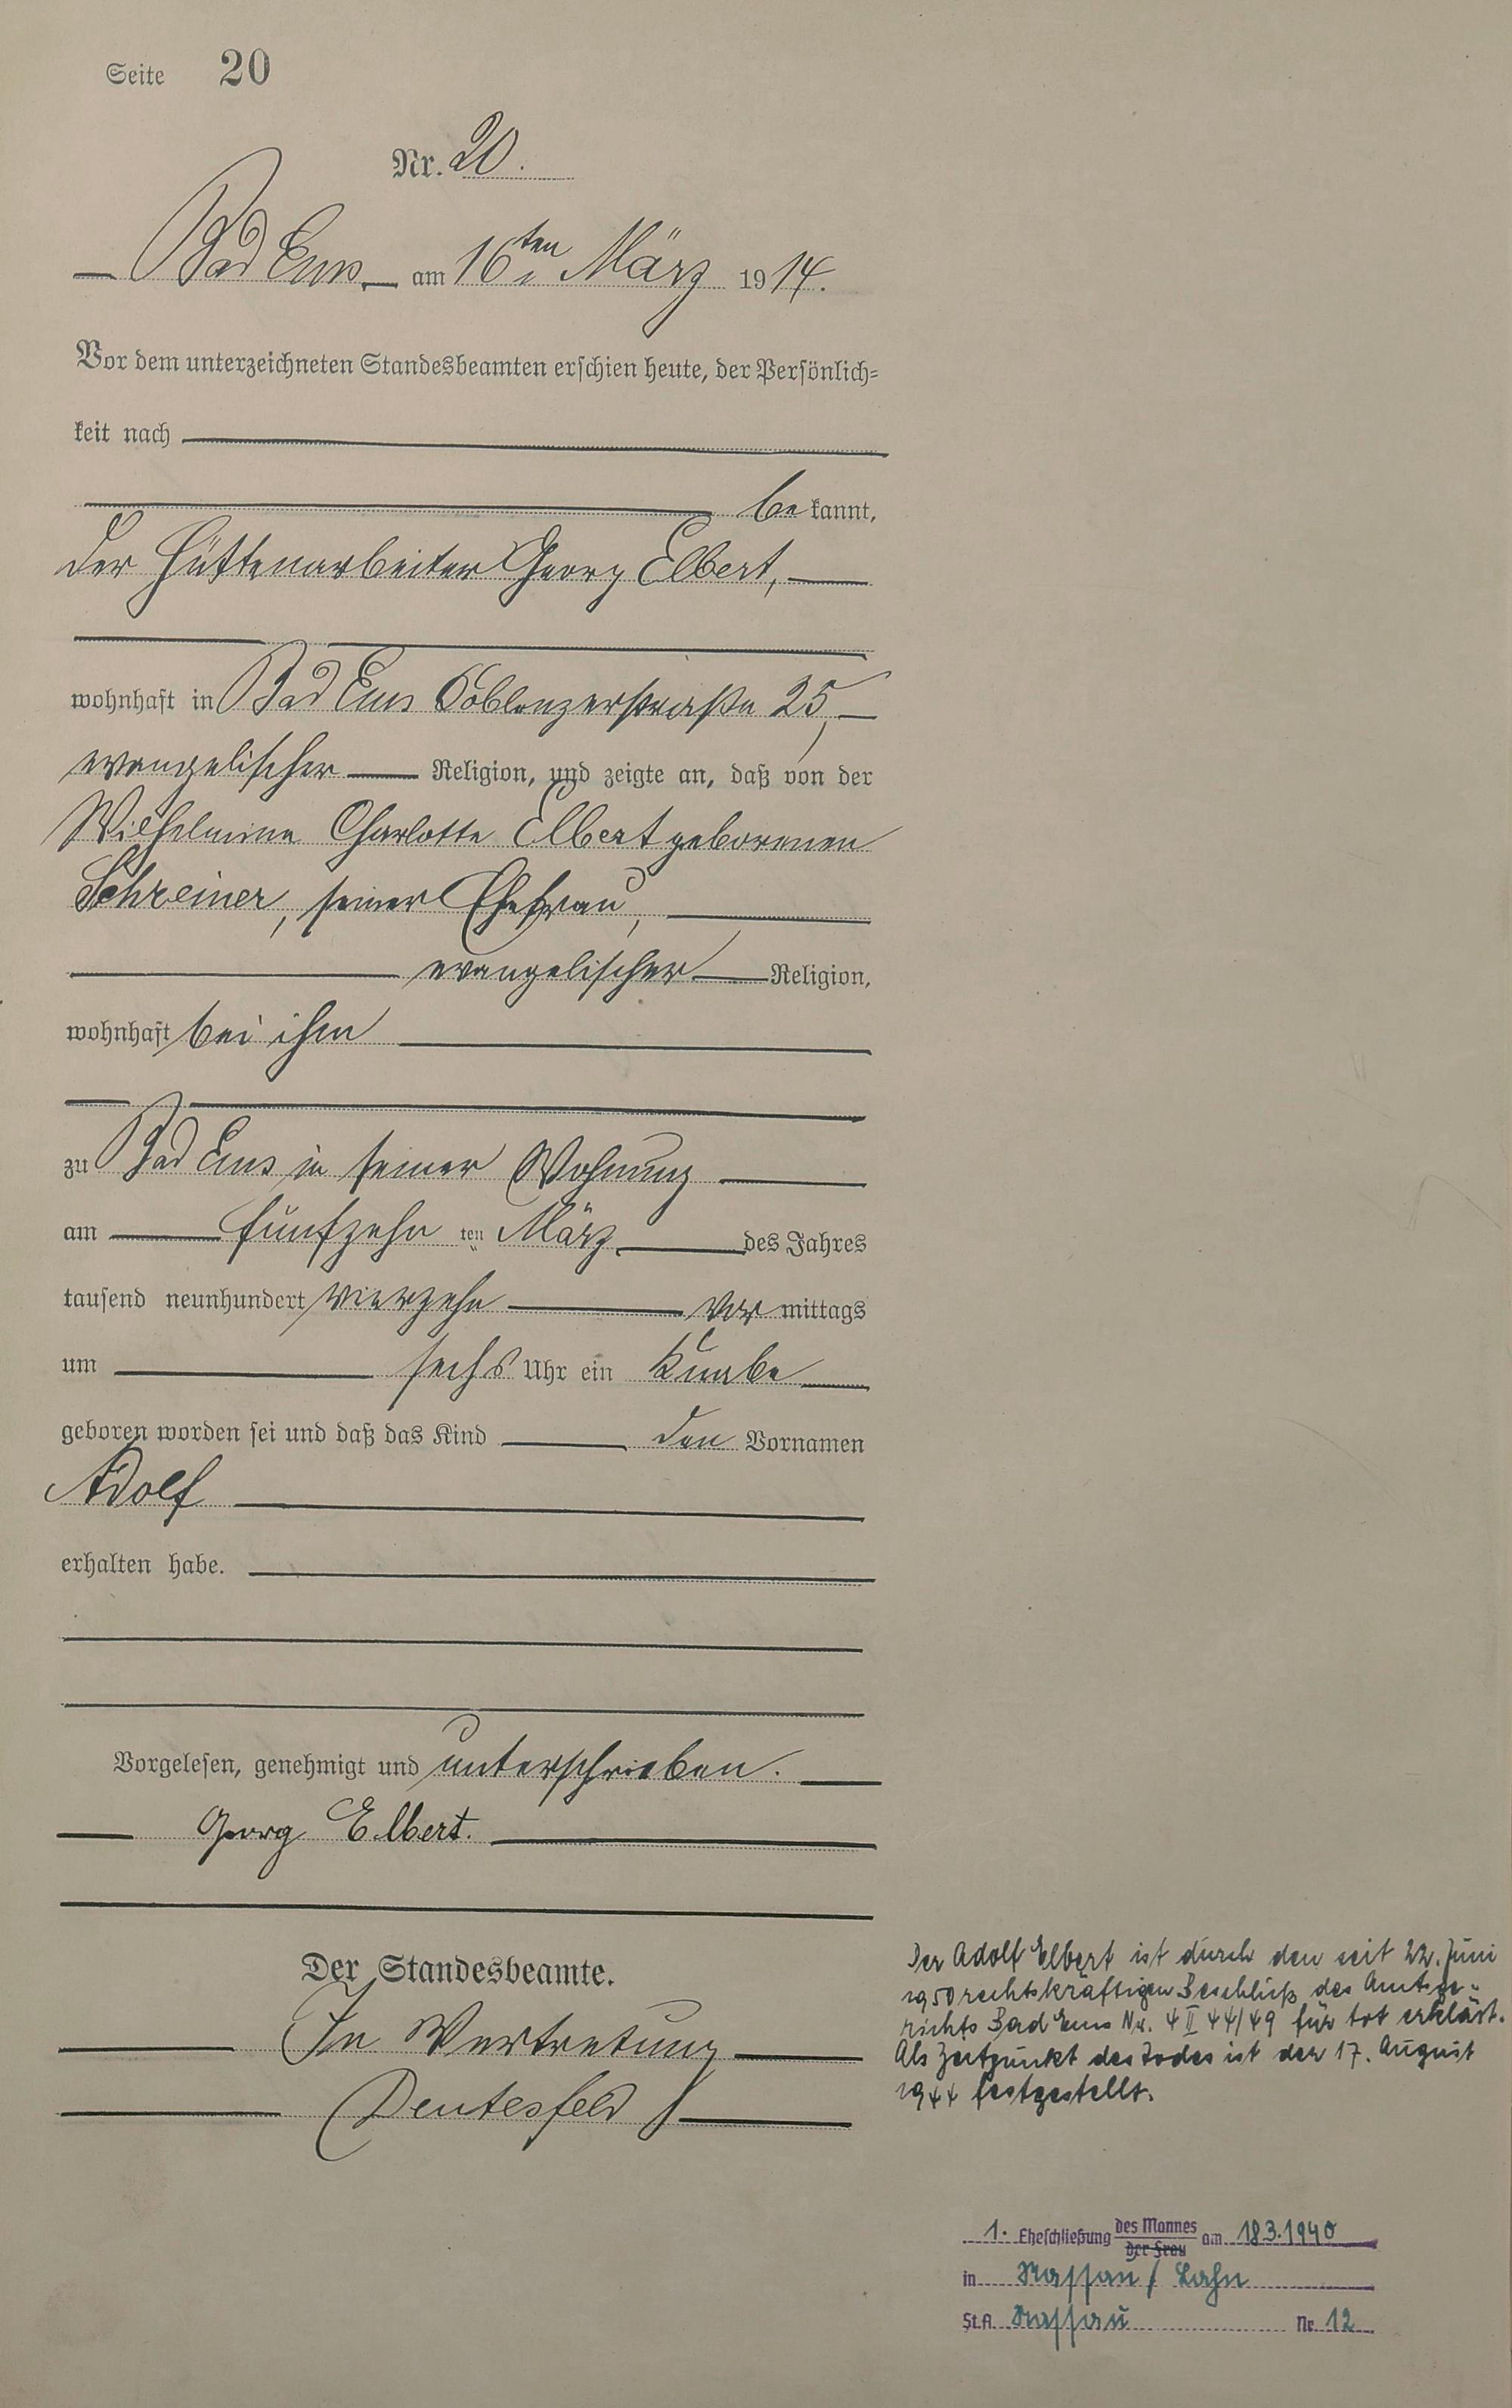 Seite 20
Nr. 20.
Bad Ems am 16ten März 1914.
Vor dem unterzeichneten Standesbeamten erschien heute, der Persönlich=
keit nach
bekannt,
der Hüttenarbeiter Georg Elbert,
wohnhaft in Bad Ems Coblenzerstraße 25,
evangelischer Religion, und zeigte an, daß von der
Wilhelmine Charlotte Elbert geborenen
Schreiner, seiner Ehefrau,
evangelischer Religion,
wohnhaft bei ihm
zu Bad Ems in seiner Wohnung
am fünfzehn ten März des Jahres
tausend neunhundert vierzehn vor mittags
um sechs Uhr ein Knabe
geboren worden sei und daß das Kind den Vornamen
Adolf
erhalten habe.
Vorgelesen, genehmigt und unterschrieben.
Georg Elbert.
Der Standesbeamte.
In Vertretung
Deutesfeld
Der Adolf Elbert ist durch den seit 22. Juni
1950 rechtskräftigen Beschluß des Amtsge=
richts Bad Ems Nr. 4 II 44/49 für tot erklärt.
Als Zeitpunkt des Todes ist der 17. August
1944 festgestellt.
1. Eheschließung des Mannes am 18.3.1940
der Frau
in Nassau / Lahn
St.A. Nassau Nr. 12